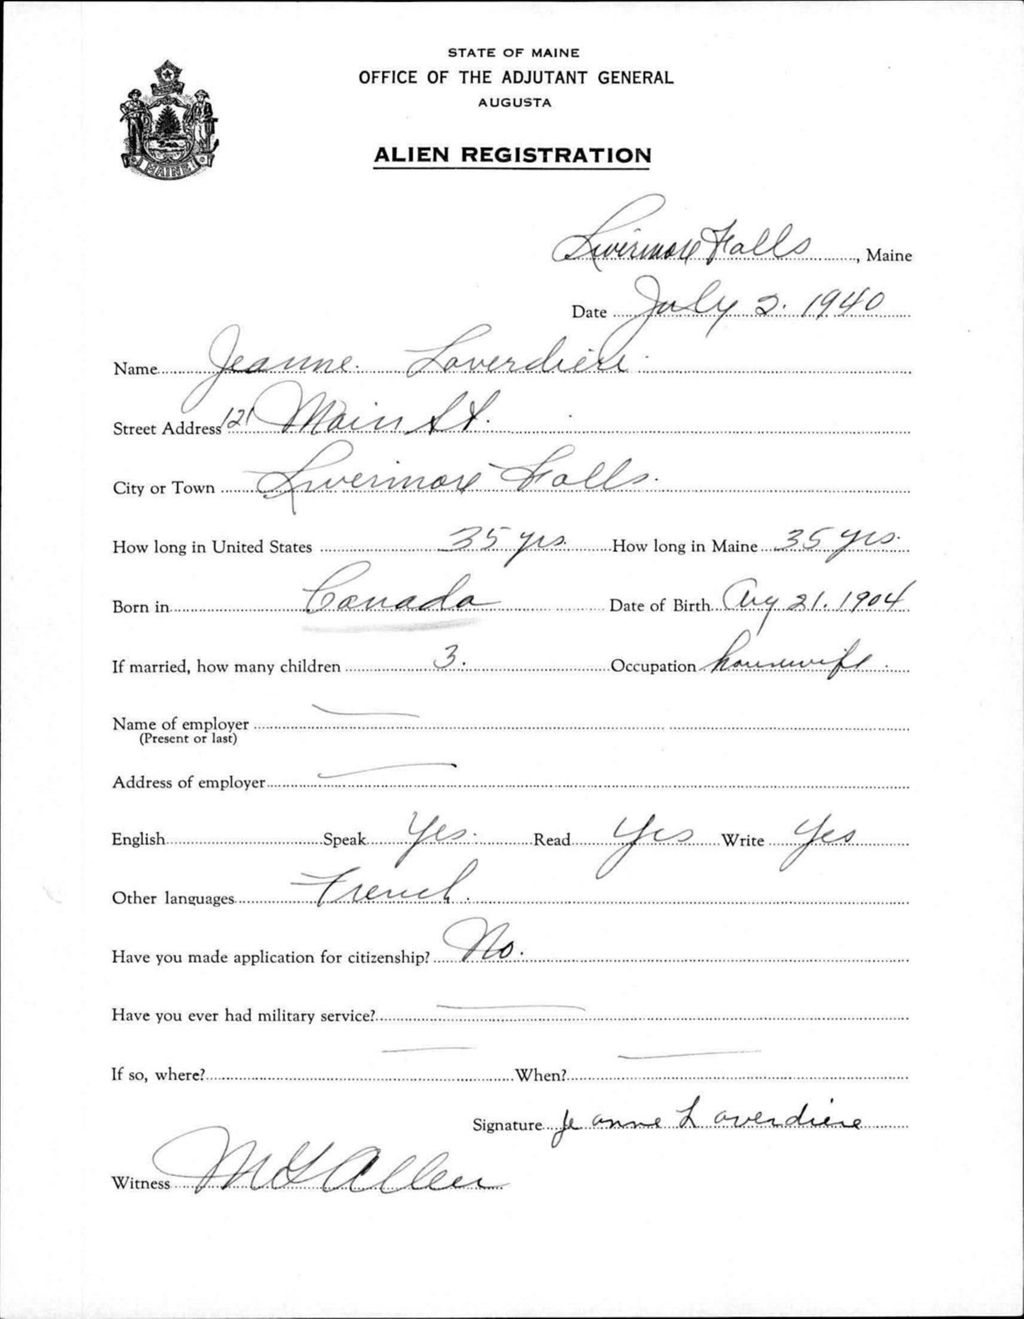 STATE OF MAINE
OFFICE OF THE ADJUTANT GENERAL
AUGUSTA
MAINE
ALIEN REGISTRATION
Livermore Falls, Maine
Date July 2. 1940
Name Jeanne Laverdiere.
Street Address 121 Main St.
City or Town Livermore Falls.
How long in United States 35 yrs. How long in Maine 35 yrs.
Born in Canada Date of Birth Aug 21. 1904
If married, how many children 3. Occupation housewife.
Name of employer
(Present or last)
Address of employer
English Speak Yes. Read Yes Write Yes
Other languages French.
Have you made application for citizenship? No.
Have you ever had military service?
If so, where? When?
Signature Jeanne Laverdiere
Witness Allen